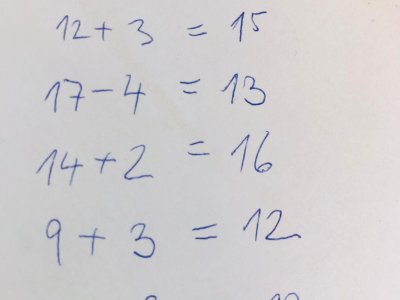 12 + 3 = 15
17 - 4 = 13
14 + 2 = 16
9 + 3 = 12